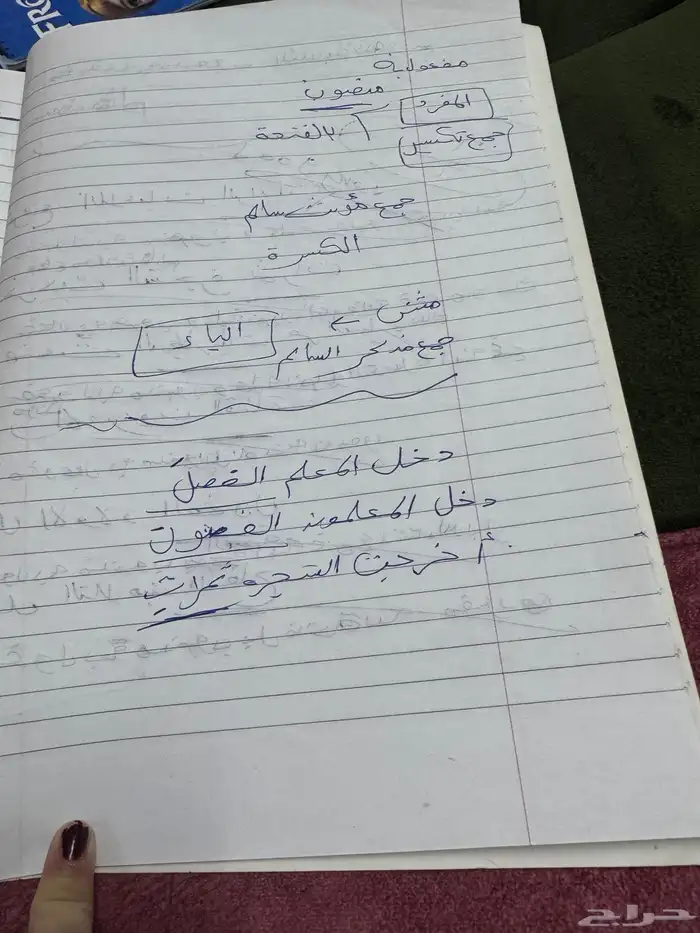 FRO
مفعول به
منصوب
المفرد
جمع تكسير
الفتحة
جمع مؤنث سالم
الكسرة
مثنى ←
جمع مذكر السالم
الياء
دخل المعلم الفصلَ
دخل المعلمون الفصول
أخرجت الشجره ثمراتٍ
حراج